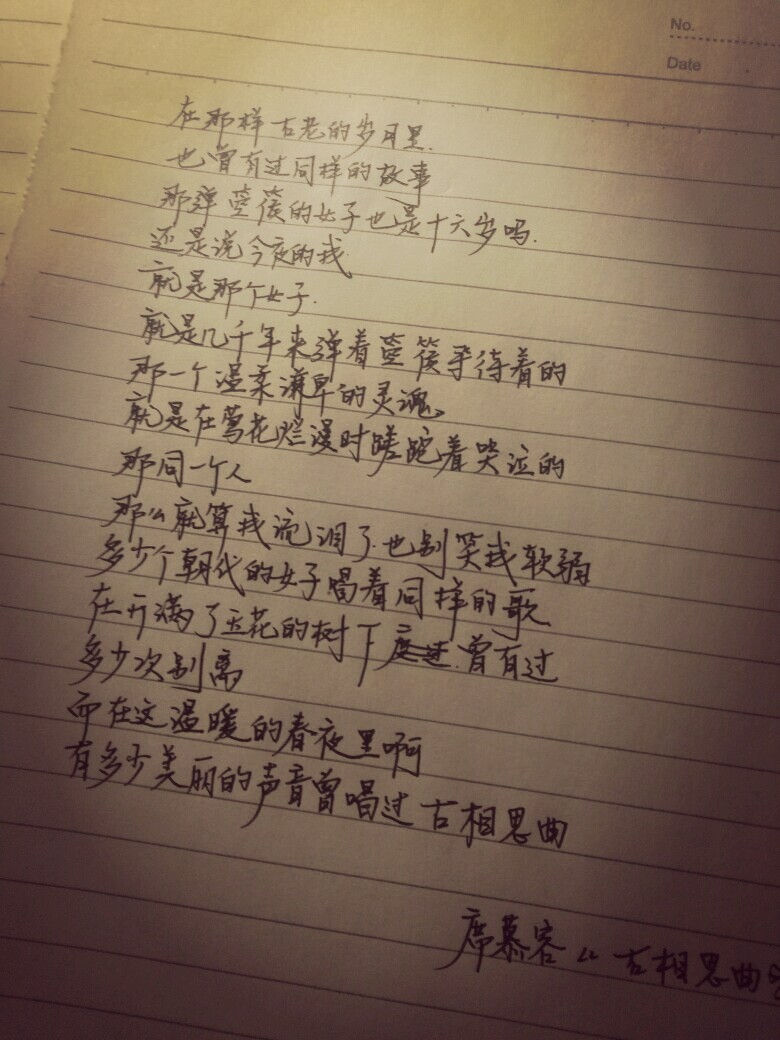 No.
Date
在那样古老的岁月里.
也曾有过同样的故事
那弹箜篌的女子也是十六岁吗.
还是说今夜的我
就是那个女子.
就是几千年来弹着箜篌等待着的
那一个温柔谦卑的灵魂
就是在莺花烂漫时蹉跎着哭泣的
那同一个人
那么就算我流泪了.也别笑我软弱
多少个朝代的女子唱着同样的歌
在开满了玉花的树下 曾有过
多少次别离
而在这温暖的春夜里啊
有多少美丽的声音曾唱过古相思曲
席慕容 《古相思曲》